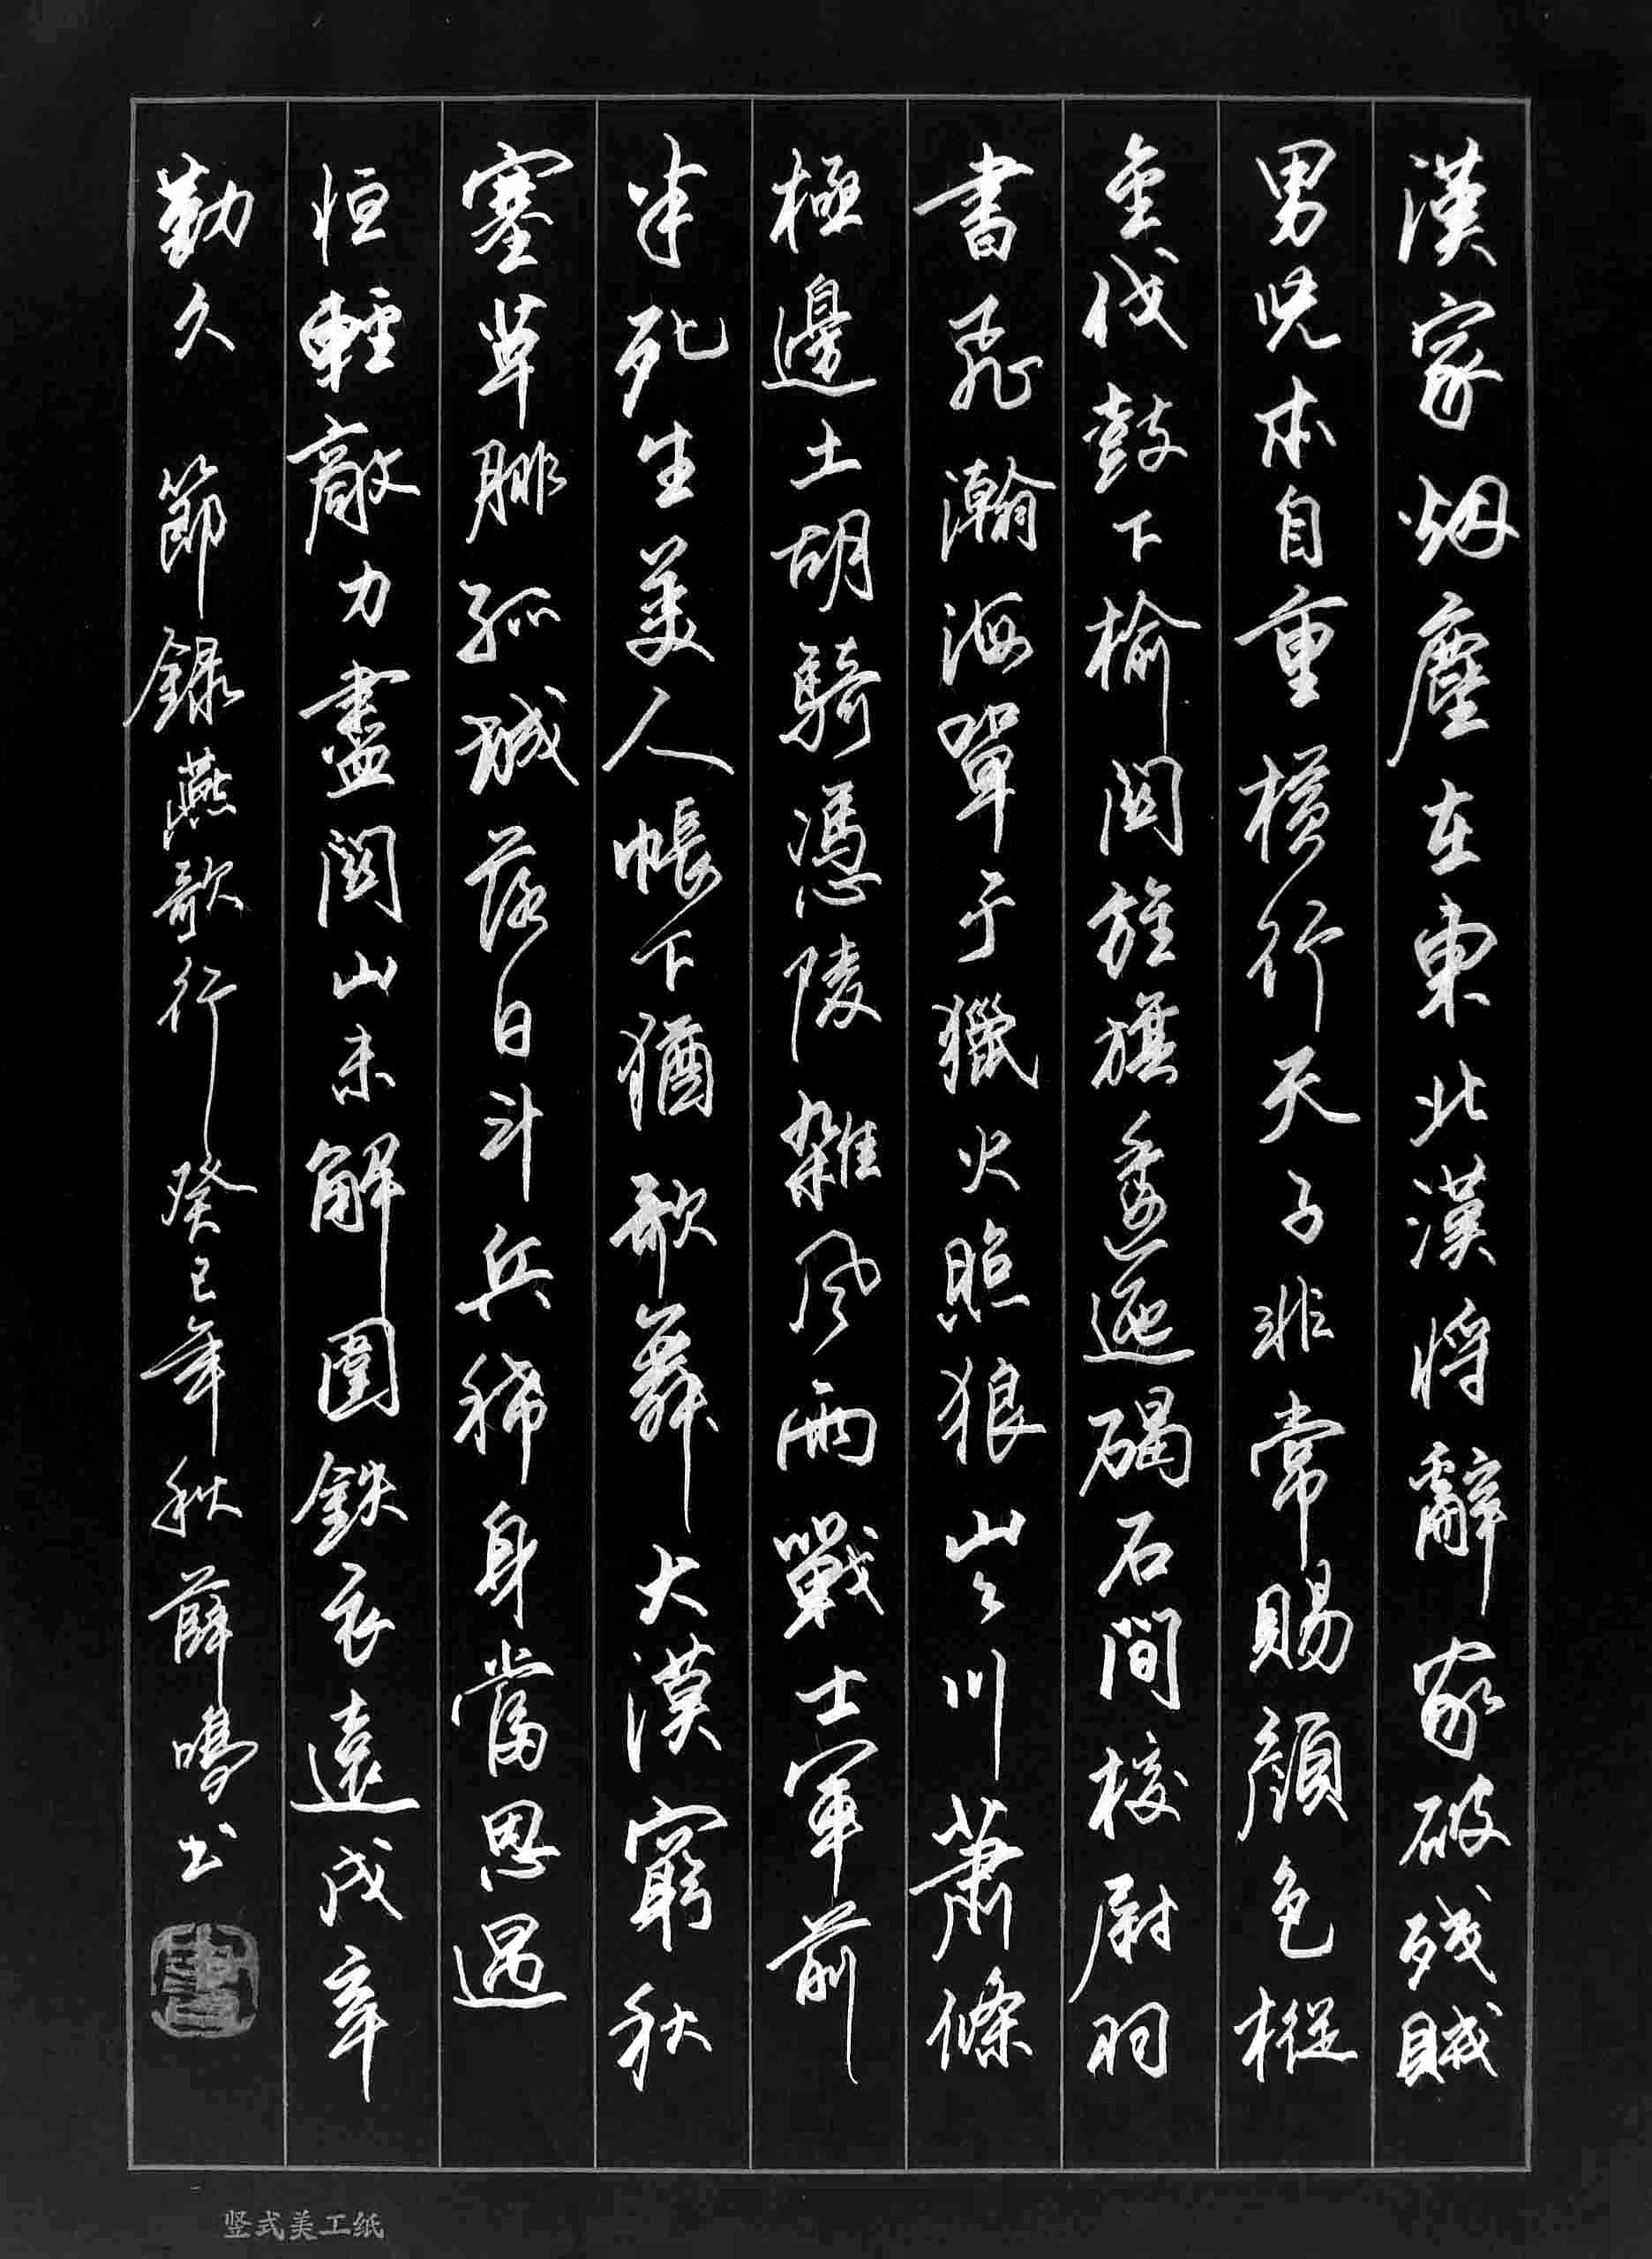 漢家烟塵在東北漢將辭家破殘賊
男兒本自重橫行天子非常賜顏色摐
金伐鼓下榆關旌旗逶迤碣石間校尉羽
書飛瀚海單于獵火照狼山々川蕭條
極邊土胡騎憑陵雜風雨戰士軍前
半死生美人帳下猶歌舞大漠窮秋
塞草腓孤城落日斗兵稀身當恩遇
恒輕敵力盡關山未解圍鉄衣遠戍辛
勤久 節錄燕歌行 癸巳年秋 薛鳴书
竖式美工纸